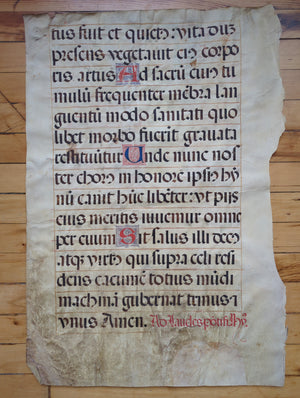 tus fuit et quietꝰ: vita dũz
presens vegetauit eiꝰ corpo
ris artus Ad sacrũ eiꝰ tu
mulũ frequenter mẽbra lan
guentũ modo sanitati quo
libet morbo fuerit grauata
restituũtur Unde nunc nos
ter chorꝰ in honorẽ ipsiꝰ hỹ
nũ canit hũc libẽter: vt pijs
eius meritis iuuemur omne
per euum Sit salus illi decꝰ
atqꝫ virtꝰ qui supra celi resi
dens cacumẽ totius mũdi
machinã gubernat trinus ⁊
vnus Amen. Ad Laudes